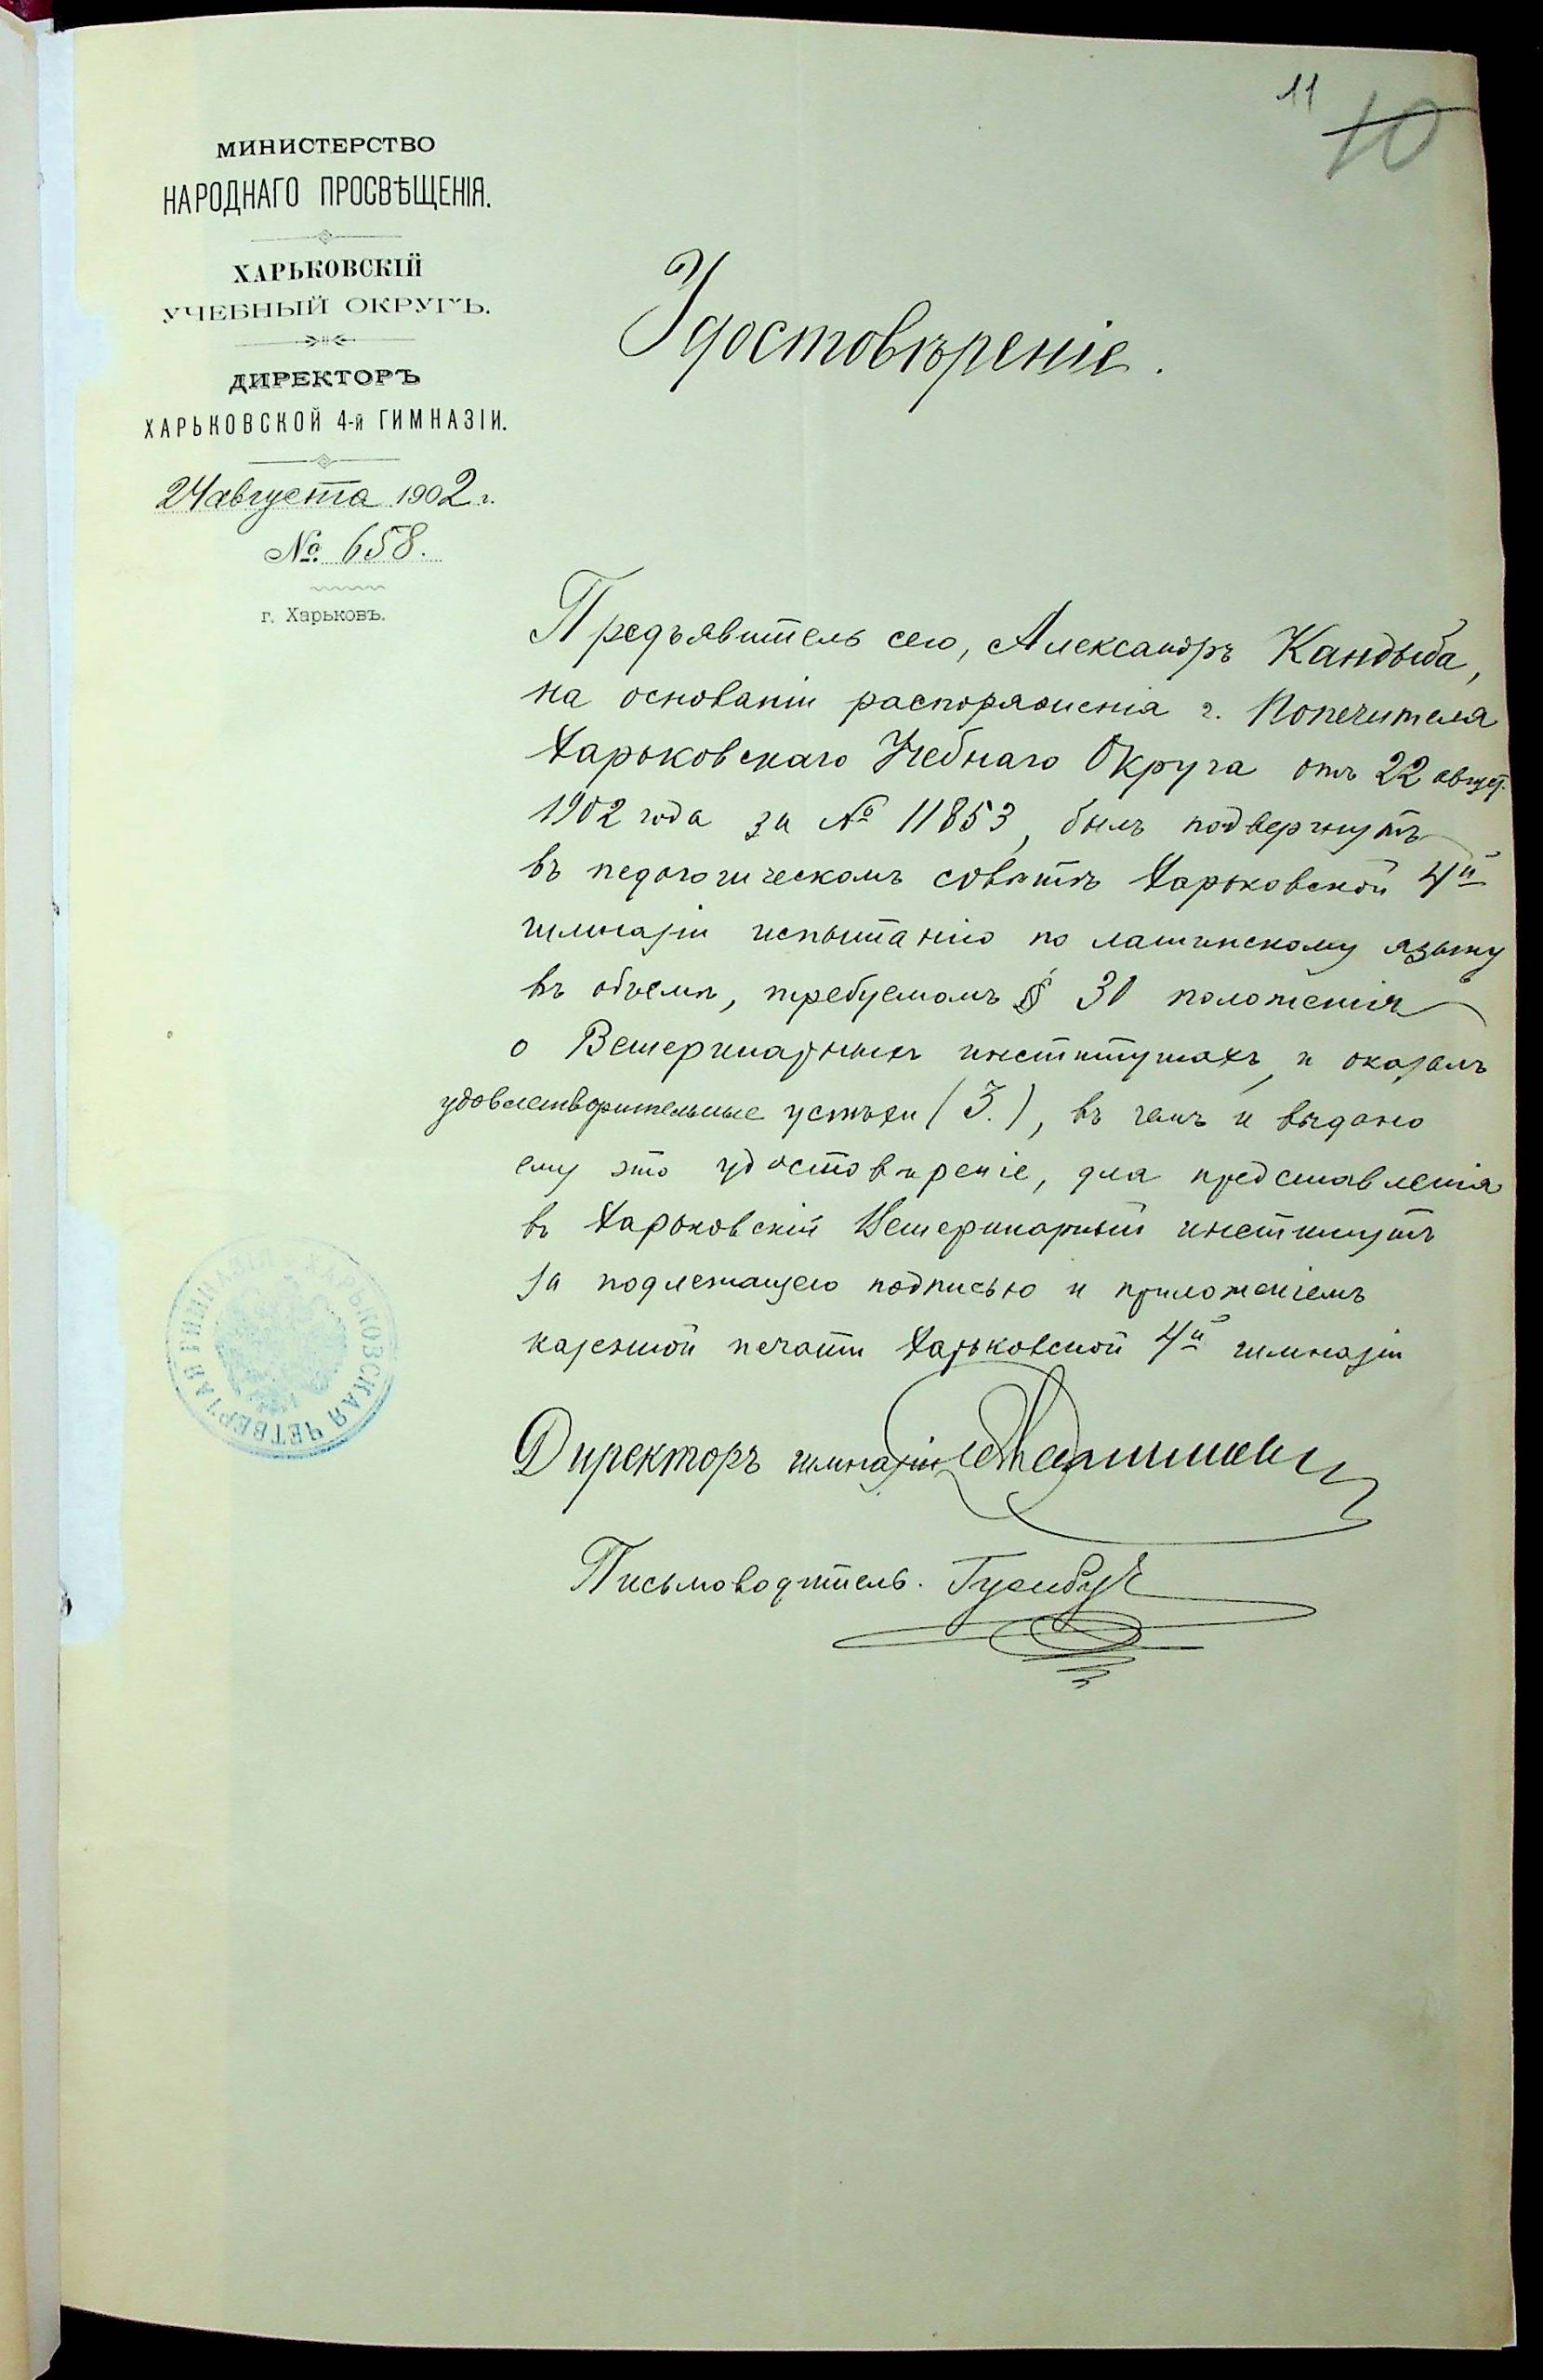 11
10
МИНИСТЕРСТВО
НАРОДНАГО ПРОСВѢЩЕНІЯ.
ХАРЬКОВСКІЙ
УЧЕБНЫЙ ОКРУГЪ.
ДИРЕКТОРЪ
ХАРЬКОВСКОЙ 4-й ГИМНАЗІИ.
24 августа 1902 г.
№ 658.
г. Харьковъ.
Удостовѣреніе.
Предъявитель сего, Александръ Кандыба,
на основаніи распоряженія г. Попечителя
Харьковскаго Учебнаго Округа отъ 22 август.
1902 года за № 11853, былъ подвергнутъ
въ педагогическомъ совѣтѣ Харьковской 4й
гимназіи испытанію по латинскому языку
въ объемѣ, требуемомъ § 30 положенія
о Ветеринарныхъ институтахъ, и оказалъ
удовлетворительные успѣхи (3.), въ чемъ и выдано
ему это удостовѣреніе, для представленія
въ Харьковскій Ветеринарный институтъ
за подлежащею подписью и приложеніемъ
казенной печати Харьковской 4й гимназіи
Директоръ гимназіи
Письмоводитель.
ХАРЬКОВСКАЯ ЧЕТВЕРТАЯ ГИМНАЗІЯ